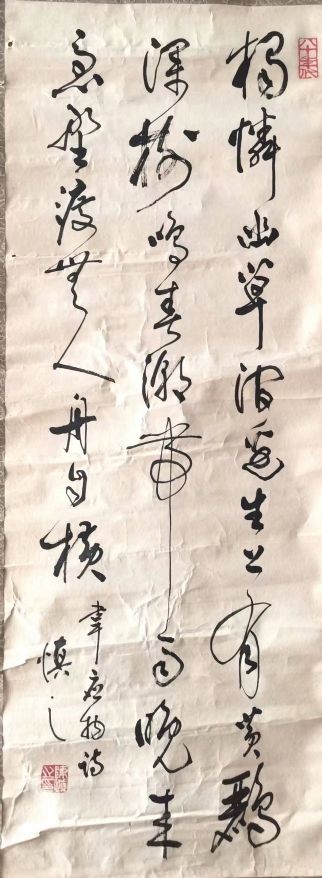 獨憐幽草澗邊生上有黄鸝
深樹鳴春潮帶雨晚来
急野渡無人舟自横
韋应物詩
慎之